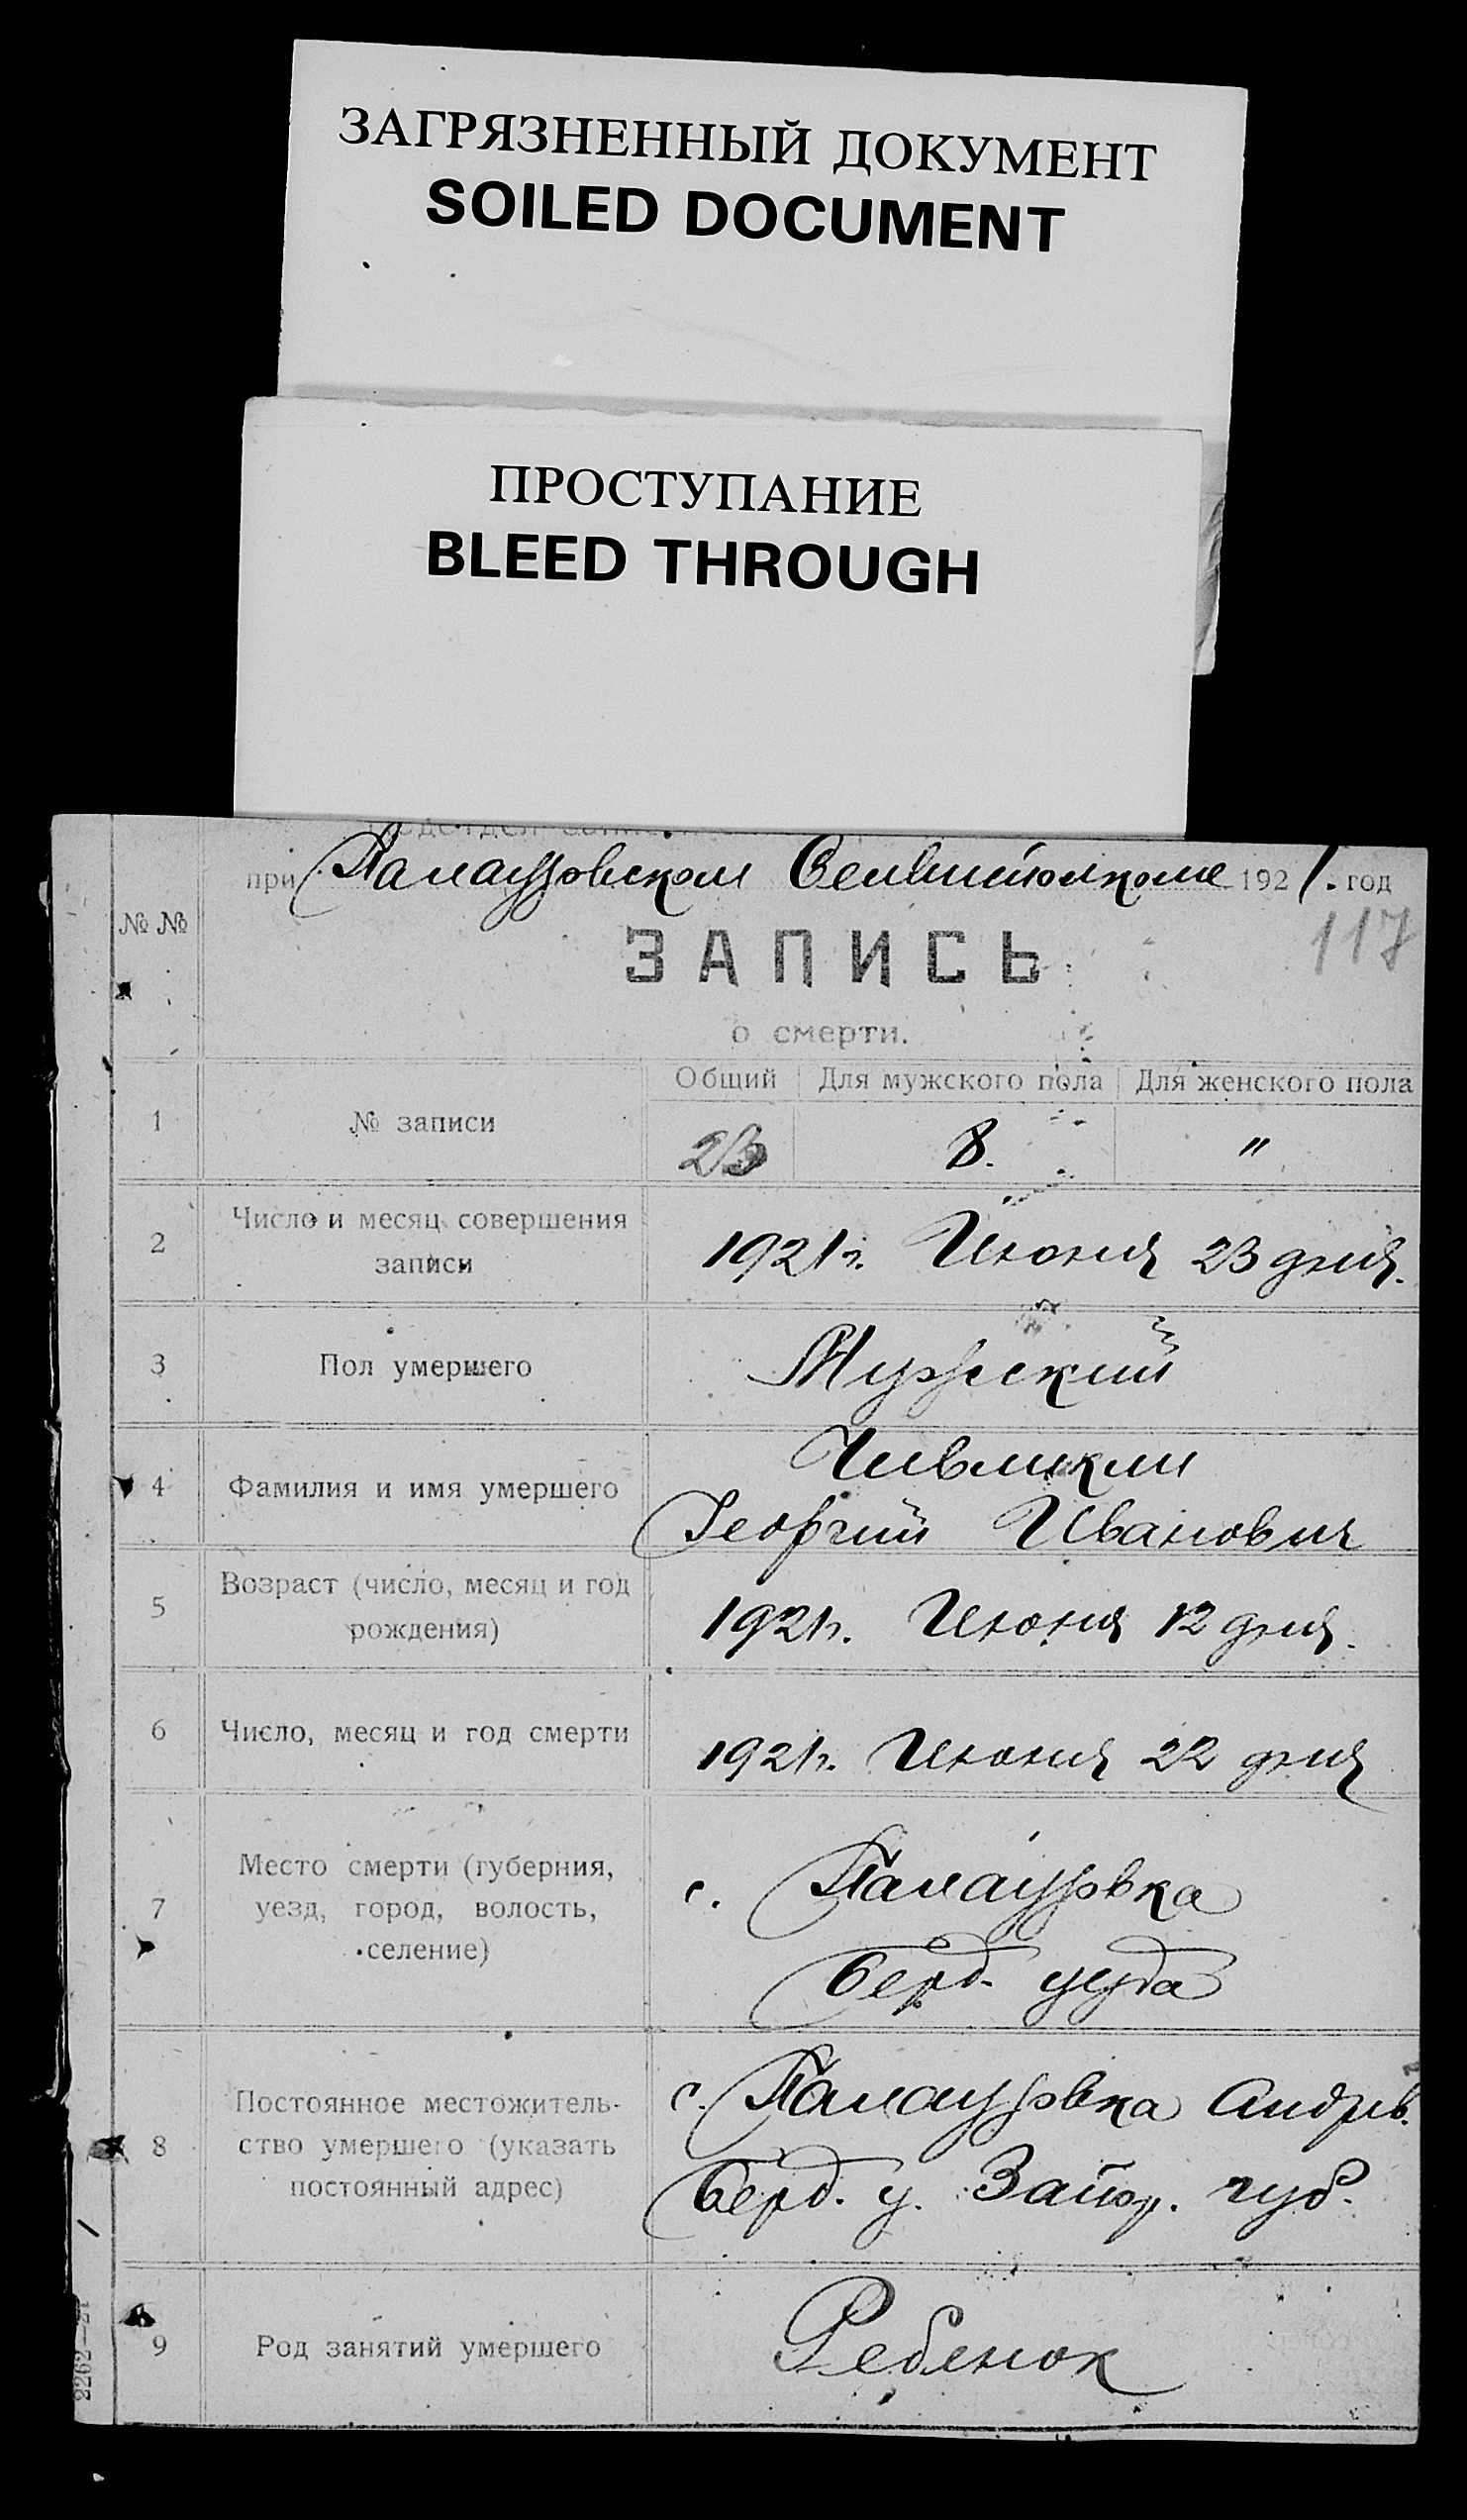 ЗАГРЯЗНЕННЫЙ ДОКУМЕНТ
SOILED DOCUMENT
ПРОСТУПАНИЕ
BLEED THROUGH
при Палаузовском 1921. год
№ № 117
ЗАПИСЬ
о смерти.
Общий Для мужского пола Для женского пола
1 № записи 23 8. "
2 Число и месяц совершения
записи
1921г. Июня 23 дня.
3 Пол умершего Мужский
4 Фамилия и имя умершего
Чивликли
Георгий Иванович
5 Возраст (число, месяц и год
рождения)
1921г. Июня 12 дня.
6 Число, месяц и год смерти
1921г. Июня 22 дня
7 Место смерти (губерния,
уезд, город, волость,
селение)
с. Палаузовка
Берд. уезда
8 Постоянное местожитель-
ство умершего (указать
постоянный адрес)
с. Палаузовка Андрів.
Берд. у. Запор. губ.
9 Род занятий умершего Ребенок
2262—21